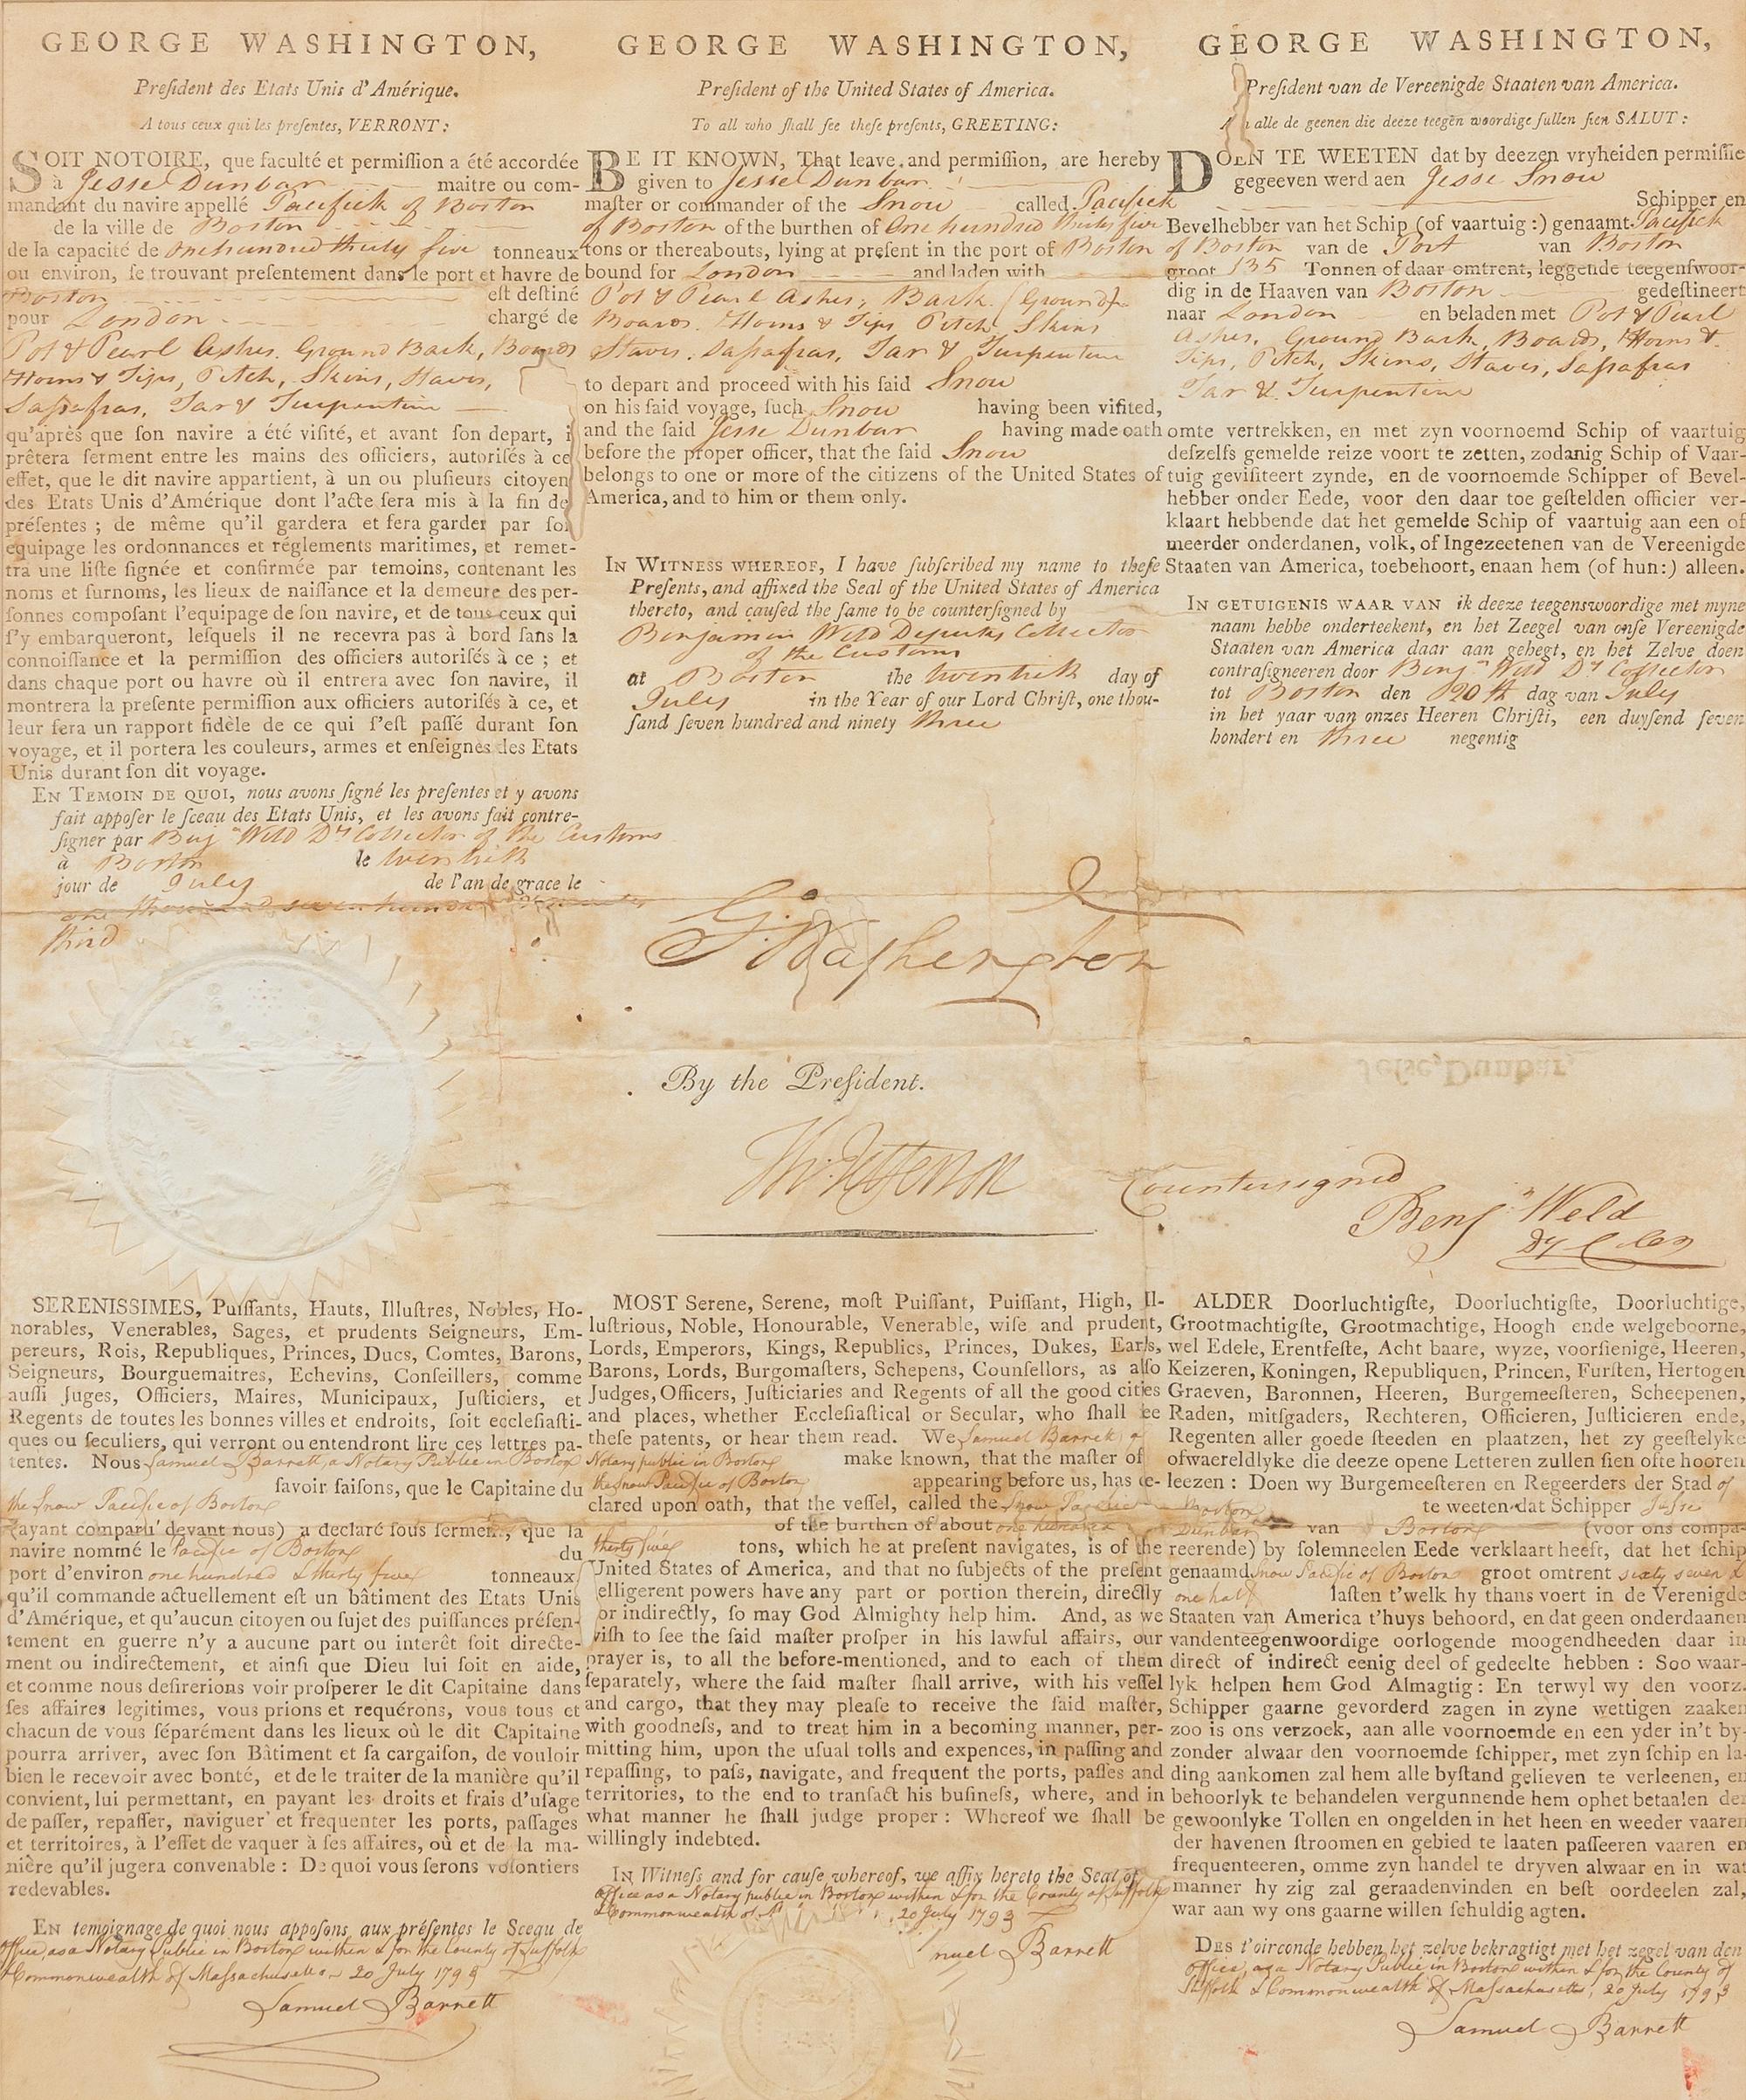 GEORGE WASHINGTON,
Preſident des Etats Unis d'Amérique.
A tous ceux qui les preſentes, VERRONT:
SOIT NOTOIRE, que faculté et permiſſion a été accordée
à Jesse Dunbar maitre ou com-
mandant du navire appellé Pacifick of Boston
de la ville de Boston
de la capacité de one hundred thirty five tonneaux
ou environ, ſe trouvant preſentement dans le port et havre de
Boston eſt deſtiné
pour London chargé de
Pot & Pearl Ashes. Ground Bark, Boards
Horns & Tips, Pitch, Skins, Staves,
Saſsafras, Tar & Turpentine
qu'après que ſon navire a été viſité, et avant ſon depart, i
prêtera ſerment entre les mains des officiers, autoriſés à ce
effet, que le dit navire appartient, à un ou pluſieurs citoyen
des Etats Unis d'Amérique dont l'acte ſera mis à la fin de
préſentes ; de même qu'il gardera et fera garder par ſo
equipage les ordonnances et réglements maritimes, et remet-
tra une liſte ſignée et confirmée par temoins, contenant les
noms et ſurnoms, les lieux de naiſſance et la demeure des per-
ſonnes compoſant l'equipage de ſon navire, et de tous ceux qui
ſ'y embarqueront, leſquels il ne recevra pas à bord ſans la
connoiſſance et la permiſſion des officiers autoriſés à ce ; et
dans chaque port ou havre où il entrera avec ſon navire, il
montrera la preſente permiſſion aux officiers autoriſés à ce, et
leur fera un rapport fidèle de ce qui ſ'eſt paſſé durant ſon
voyage, et il portera les couleurs, armes et enſeignes des Etats
Unis durant ſon dit voyage.
EN TEMOIN DE QUOI, nous avons ſigné les preſentes et y avons
fait appoſer le ſceau des Etats Unis, et les avons fait contre-
ſigner par Benj Weld Dy Collector of the Customs
à Boston le twentieth
jour de July de l'an de grace le
one thousand seven hundred & ninety
third
GEORGE WASHINGTON,
Preſident of the United States of America.
To all who ſhall ſee theſe preſents, GREETING:
BE IT KNOWN, That leave and permiſſion, are hereby
given to Jesse Dunbar
maſter or commander of the Snow called Pacifick
of Boston of the burthen of One hundred thirty five
tons or thereabouts, lying at preſent in the port of Boston
bound for London and laden with
Pot & Pearl Ashes, Bark (Ground)
Boards. Horns & Tips Pitch, Skins
Staves. Saſsafras, Tar & Turpentine
to depart and proceed with his ſaid Snow
on his ſaid voyage, ſuch Snow having been viſited,
and the ſaid Jesse Dunbar having made oath
before the proper officer, that the ſaid Snow
belongs to one or more of the citizens of the United States of
America, and to him or them only.
IN WITNESS WHEREOF, I have ſubſcribed my name to theſe
Preſents, and affixed the Seal of the United States of America
thereto, and cauſed the ſame to be counterſigned by
Benjamin Weld Deputy Collector
of the Customs
at Boston the twentieth day of
July in the Year of our Lord Chriſt, one thou-
ſand ſeven hundred and ninety three
GEORGE WASHINGTON,
Preſident van de Vereenigde Staaten van America.
alle de geenen die deeze teegen woordige ſullen ſien SALUT:
DOEN TE WEETEN dat by deezen vryheiden permiſſie
gegeeven werd aen Jesse Snow
Schipper en
Bevelhebber van het Schip (of vaartuig:) genaamt Pacifick
of Boston van de Port van Boston
groot 135 Tonnen of daar omtrent, leggende teegenſwoor-
dig in de Haaven van Boston gedeſtineert
naar London en beladen met Pot & Pearl
Ashes, Ground Bark, Boards, Horns &
Tips, Pitch, Skins, Staves, Saſsafras
Tar & Turpentine
omte vertrekken, en met zyn voornoemd Schip of vaartuig
deſzelfs gemelde reize voort te zetten, zodanig Schip of Vaar-
tuig geviſiteert zynde, en de voornoemde Schipper of Bevel-
hebber onder Eede, voor den daar toe geſtelden officier ver-
klaart hebbende dat het gemelde Schip of vaartuig aan een of
meerder onderdanen, volk, of Ingezeetenen van de Vereenigde
Staaten van America, toebehoort, enaan hem (of hun:) alleen.
IN GETUIGENIS WAAR VAN ik deeze teegenswoordige met myne
naam hebbe onderteekent, en het Zeegel van onſe Vereenigde
Staaten van America daar aan gehegt, en het Zelve doen
contraſigneeren door Benjn Weld Dy Collector
tot Boston den 20th dag van July
in het yaar van onzes Heeren Chriſti, een duyſend ſeven
hondert en three negentig
G. Washington
By the Preſident.
Th: Jefferson
Jeſse, Dunbar,
Countersigned
Benjn Weld
Dy Coler
SERENISSIMES, Puiſſants, Hauts, Illuſtres, Nobles, Ho-
norables, Venerables, Sages, et prudents Seigneurs, Em-
pereurs, Rois, Republiques, Princes, Ducs, Comtes, Barons,
Seigneurs, Bourguemaitres, Echevins, Conſeillers, comme
auſſi Juges, Officiers, Maires, Municipaux, Juſticiers, et
Regents de toutes les bonnes villes et endroits, ſoit eccleſiaſti-
ques ou ſeculiers, qui verront ou entendront lire ces lettres pa-
tentes. Nous Samuel Barrett, a Notary Public in Boston
ſavoir faiſons, que le Capitaine du
the Snow Pacific of Boston
(ayant comparu devant nous) a declaré ſous ferment, que la
navire nommé le Pacific of Boston du
port d'environ one hundred & thirty five tonneaux
qu'il commande actuellement eſt un bâtiment des Etats Unis
d'Amérique, et qu'aucun citoyen ou ſujet des puiſſances préſen-
tement en guerre n'y a aucune part ou interêt ſoit directe-
ment ou indirectement, et ainſi que Dieu lui ſoit en aide,
et comme nous deſirerions voir proſperer le dit Capitaine dans
ſes affaires legitimes, vous prions et requérons, vous tous et
chacun de vous ſéparément dans les lieux où le dit Capitaine
pourra arriver, avec ſon Bâtiment et ſa cargaiſon, de vouloir
bien le recevoir avec bonté, et de le traiter de la manière qu'il
convient, lui permettant, en payant les droits et frais d'uſage
de paſſer, repaſſer, naviguer et frequenter les ports, paſſages
et territoires, à l'effet de vaquer à ſes affaires, où et de la ma-
nière qu'il jugera convenable : De quoi vous ſerons volontiers
redevables.
EN temoignage de quoi nous appoſons aux préſentes le Sceau de
Office, as a Notary Public in Boston within & for the County of Suffolk
& Commonwealth of Massachusetts 20 July 1793
Samuel Barrett
MOST Serene, Serene, moſt Puiſſant, Puiſſant, High, Il-
luſtrious, Noble, Honourable, Venerable, wiſe and prudent,
Lords, Emperors, Kings, Republics, Princes, Dukes, Earls,
Barons, Lords, Burgomaſters, Schepens, Counſellors, as alſo
Judges, Officers, Juſticiaries and Regents of all the good cities
and places, whether Eccleſiaſtical or Secular, who ſhall ſee
theſe patents, or hear them read. We Samuel Barrett a
Notary public in Boston make known, that the maſter of
the Snow Pacific of Boston appearing before us, has de-
clared upon oath, that the veſſel, called the Snow Pacific Boston
of the burthen of about one hundred
thirty five tons, which he at preſent navigates, is of the
United States of America, and that no ſubjects of the preſent
elligerent powers have any part or portion therein, directly
or indirectly, ſo may God Almighty help him. And, as we
wiſh to ſee the ſaid maſter proſper in his lawful affairs, our
prayer is, to all the before-mentioned, and to each of them
ſeparately, where the ſaid maſter ſhall arrive, with his veſſel
and cargo, that they may pleaſe to receive the ſaid maſter,
with goodneſs, and to treat him in a becoming manner, per-
mitting him, upon the uſual tolls and expences, in paſſing and
repaſſing, to paſs, navigate, and frequent the ports, paſſes and
territories, to the end to tranſact his buſineſs, where, and in
what manner he ſhall judge proper : Whereof we ſhall be
willingly indebted.
In Witneſs and for cauſe whereof, we affix hereto the Seal of
office as a Notary public in Boston within & for the County of Suffolk
& Commonwealth of 20 July 1793
nuel Barrett
ALDER Doorluchtigſte, Doorluchtigſte, Doorluchtige,
Grootmachtigſte, Grootmachtige, Hoogh ende welgeboorne,
wel Edele, Erentfeſte, Acht baare, wyze, voorſienige, Heeren,
Keizeren, Koningen, Republiquen, Princen, Furſten, Hertogen
Graeven, Baronnen, Heeren, Burgemeeſteren, Scheepenen,
Raden, mitſgaders, Rechteren, Officieren, Juſticieren ende,
Regenten aller goede ſteeden en plaatzen, het zy geeſtelyke
ofwaereldlyke die deeze opene Letteren zullen ſien ofte hooren
leezen : Doen wy Burgemeeſteren en Regeerders der Stad of
te weeten dat Schipper Jesse
Dunbar van Boston (voor ons compa-
reerende) by ſolemneelen Eede verklaart heeft, dat het ſchip
genaamd Snow Pacific of Boston groot omtrent sixty seven &
one half laſten t'welk hy thans voert in de Verenigde
Staaten van America t'huys behoord, en dat geen onderdaanen
vandenteegenwoordige oorlogende moogendheeden daar in
direct of indirect eenig deel of gedeelte hebben : Soo waar-
lyk helpen hem God Almagtig : En terwyl wy den voorz.
Schipper gaarne gevorderd zagen in zyne wettigen zaaken
zoo is ons verzoek, aan alle voornoemde en een yder in't by-
zonder alwaar den voornoemde ſchipper, met zyn ſchip en la-
ding aankomen zal hem alle byſtand gelieven te verleenen, en
behoorlyk te behandelen vergunnende hem ophet betaalen der
gewoonlyke Tollen en ongelden in het heen en weeder vaaren
der havenen ſtroomen en gebied te laaten paſſeeren vaaren en
frequenteeren, omme zyn handel te dryven alwaar en in wat
manner hy zig zal geraadenvinden en beſt oordeelen zal,
war aan wy ons gaarne willen ſchuldig agten.
DES t'oirconde hebben het zelve bekragtigt met het zegel van den
office, as a Notary Public in Boston within & for the County of
Suffolk & Commonwealth of Massachusetts, 20 July 1793
Samuel Barrett